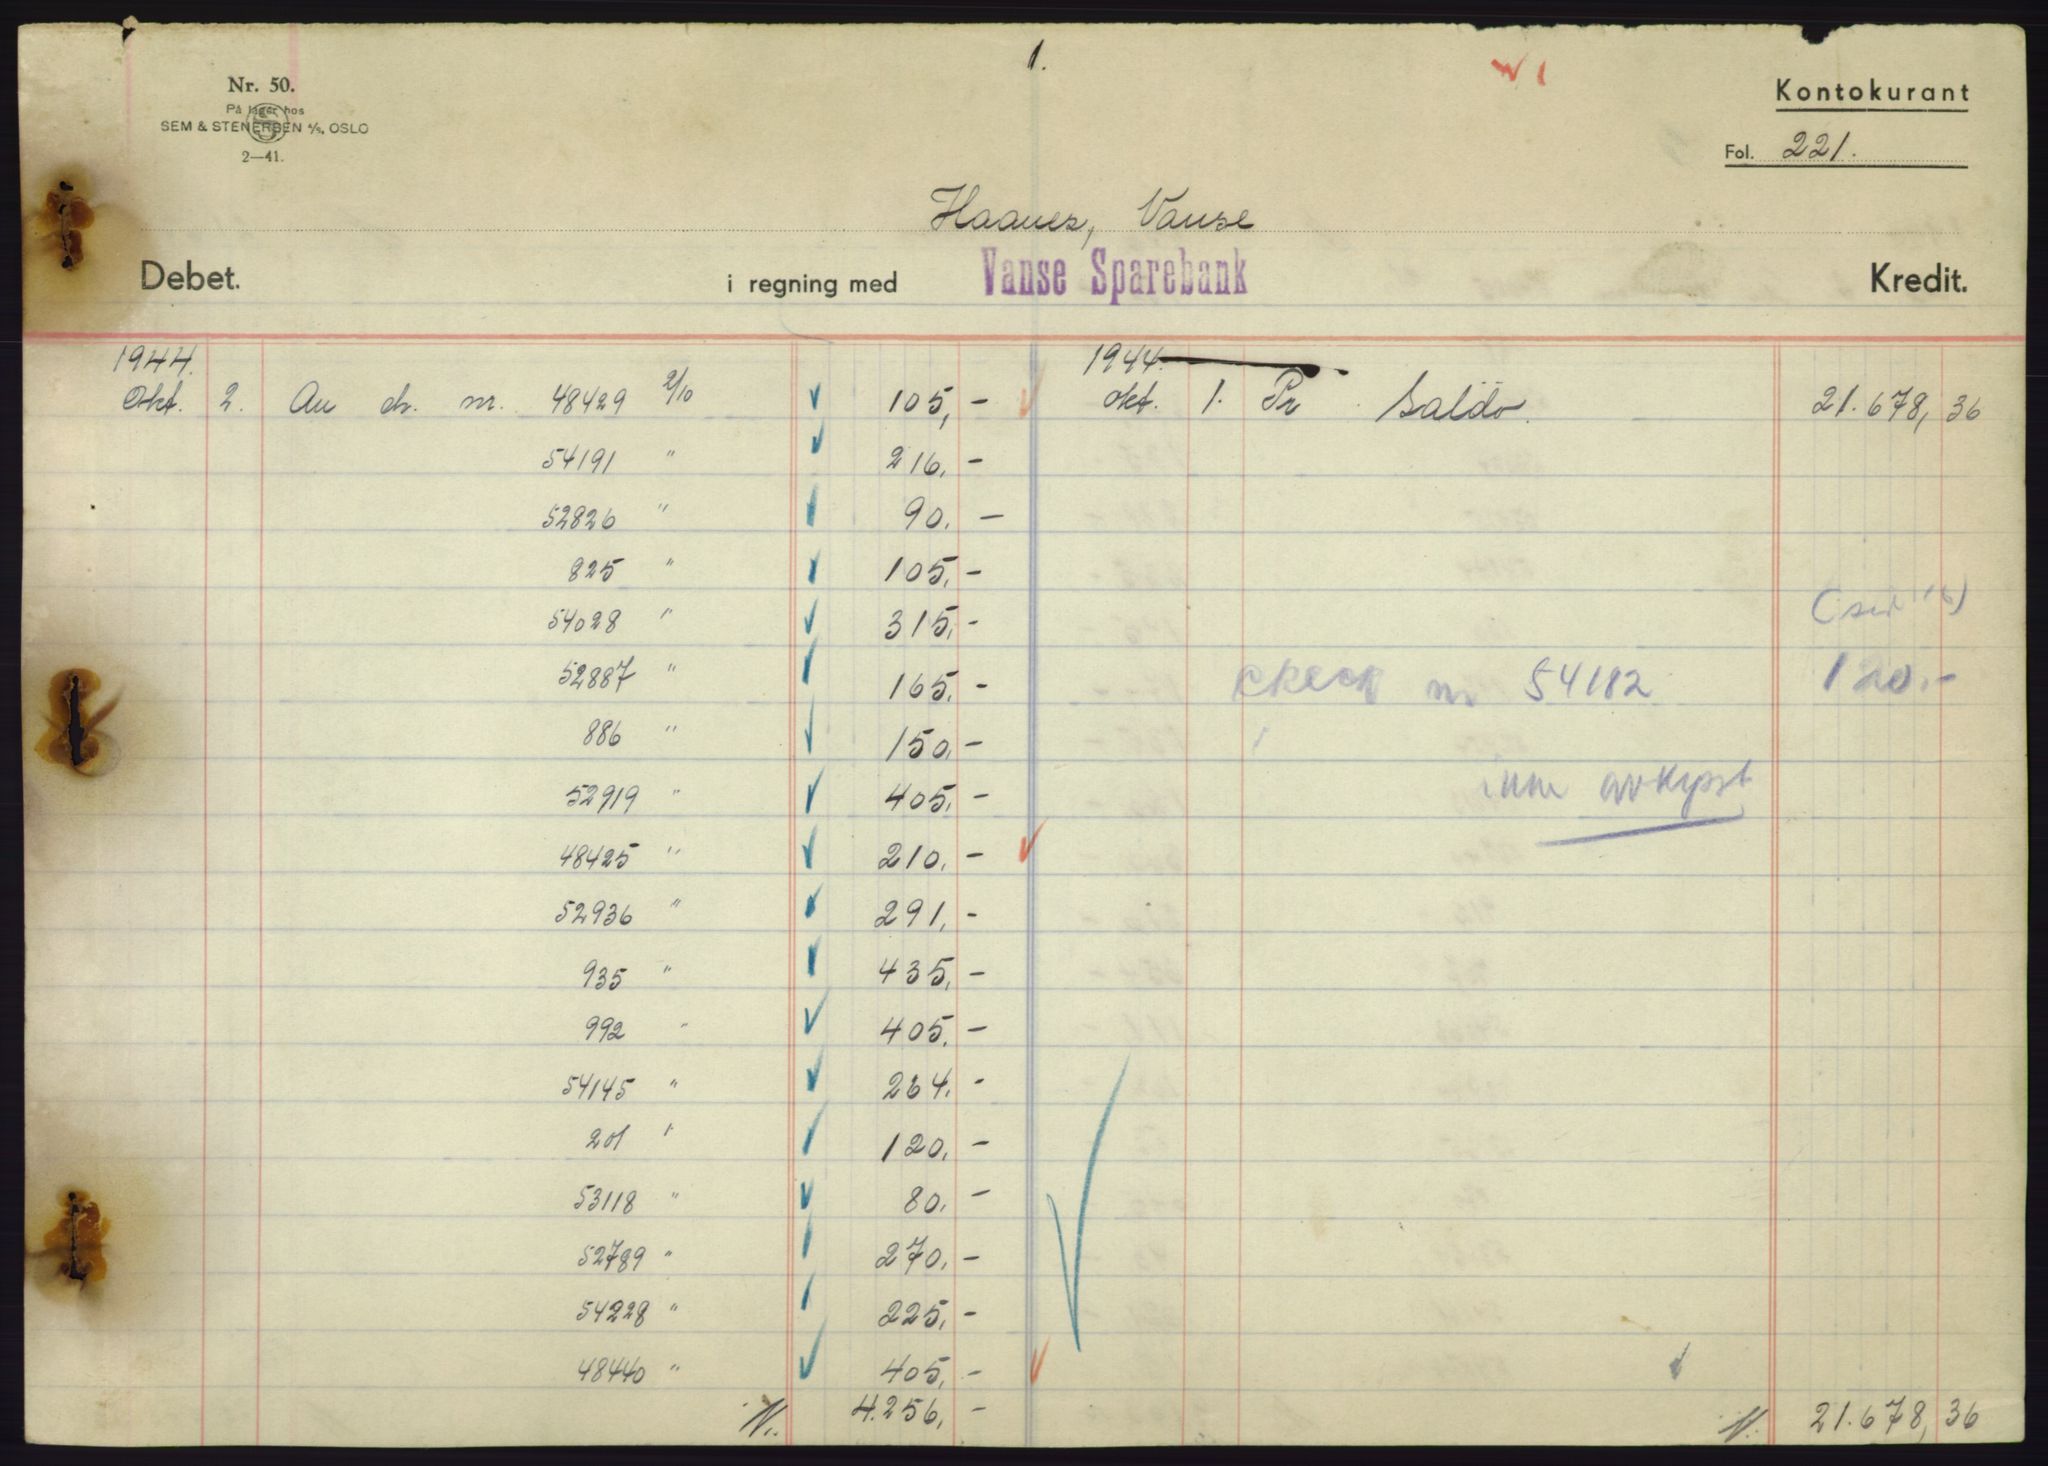 1.
Nr. 50.
På lager hos
SEM & STENERSEN A/S, OSLO
2—41.
Kontokurant
Fol. 221.
Haanes, Vanse
Debet. i regning med Vanse Sparebank Kredit.
1944. 1944.
Okt. 2. An ch. nr. 48429 2/10 105,- okt. 1. Pr Saldo. 21.678,36
54191 " 216,-
52826 " 90,-
825 " 105,-
54028 " 315,-
52887 " 165,- check nr 54182 120.-
886 " 150,-
52919 " 405,-
48425 " 210,-
52936 " 291,-
935 " 435,-
992 " 405,-
54145 " 264,-
201 " 120,-
53118 " 80,-
52789 " 270,-
54228 " 225,-
48440 " 405,-
4.256,- 21.678,36